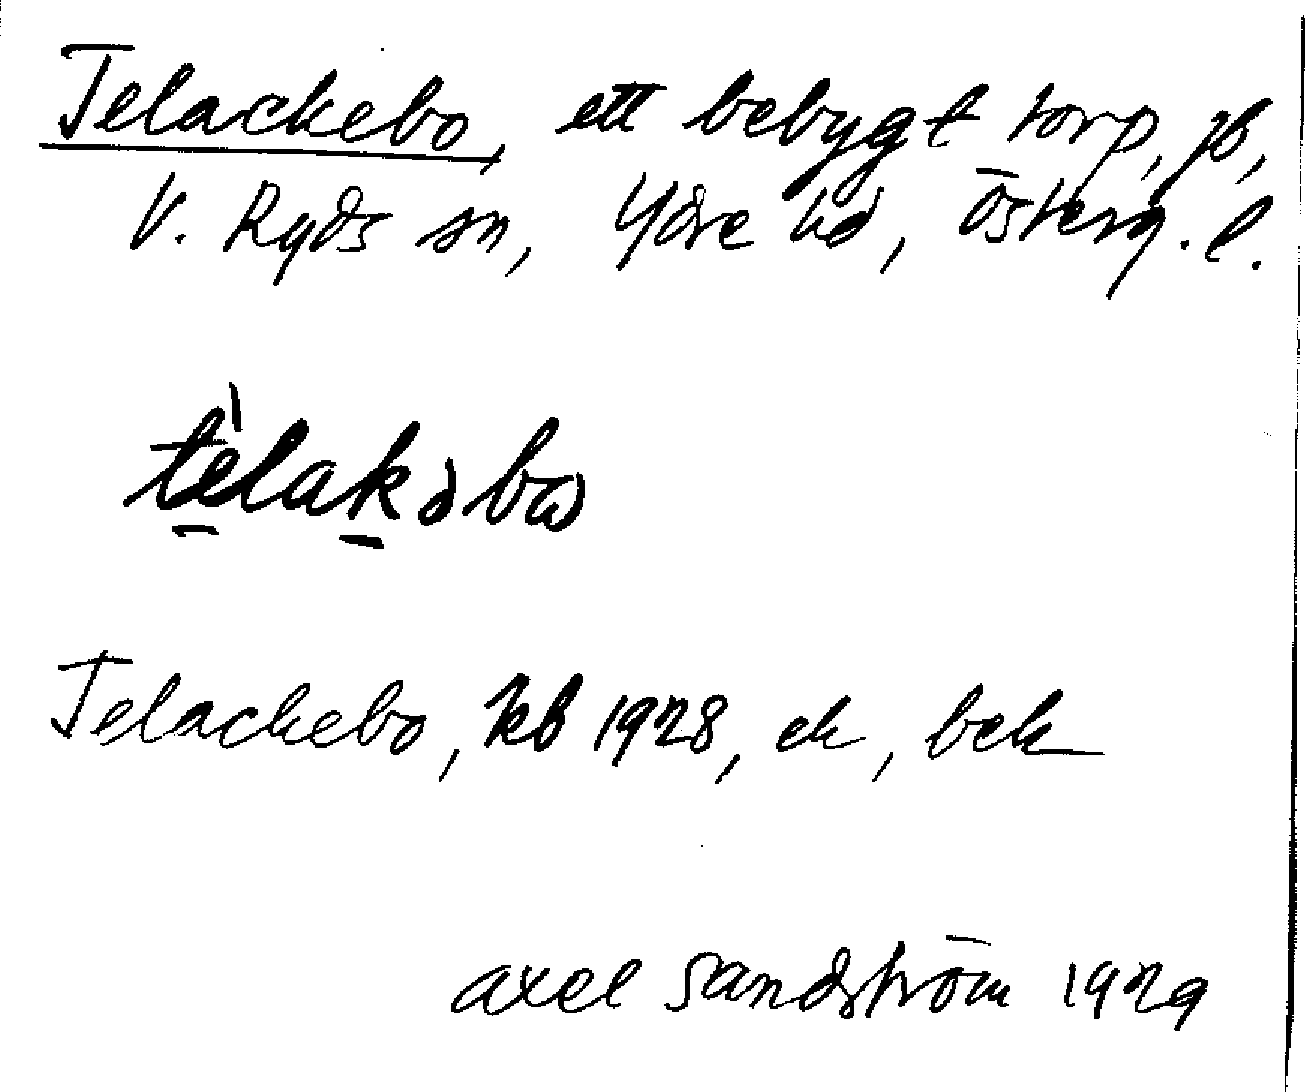 Telackebo, ett bebygt torp, jb,
V. Ryds sn, Ydre hd, Österg. l.
tèlakəbω
Telackebo, kb 1928, ek, bek
axel Sandström 1929